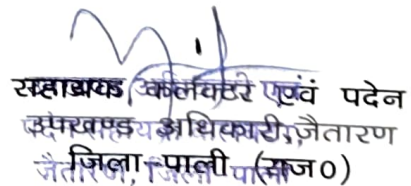 सहायक कलेक्टर एवं पदेन
उपखण्ड अधिकारी, जैतारण
जिला-पाली (राज0)